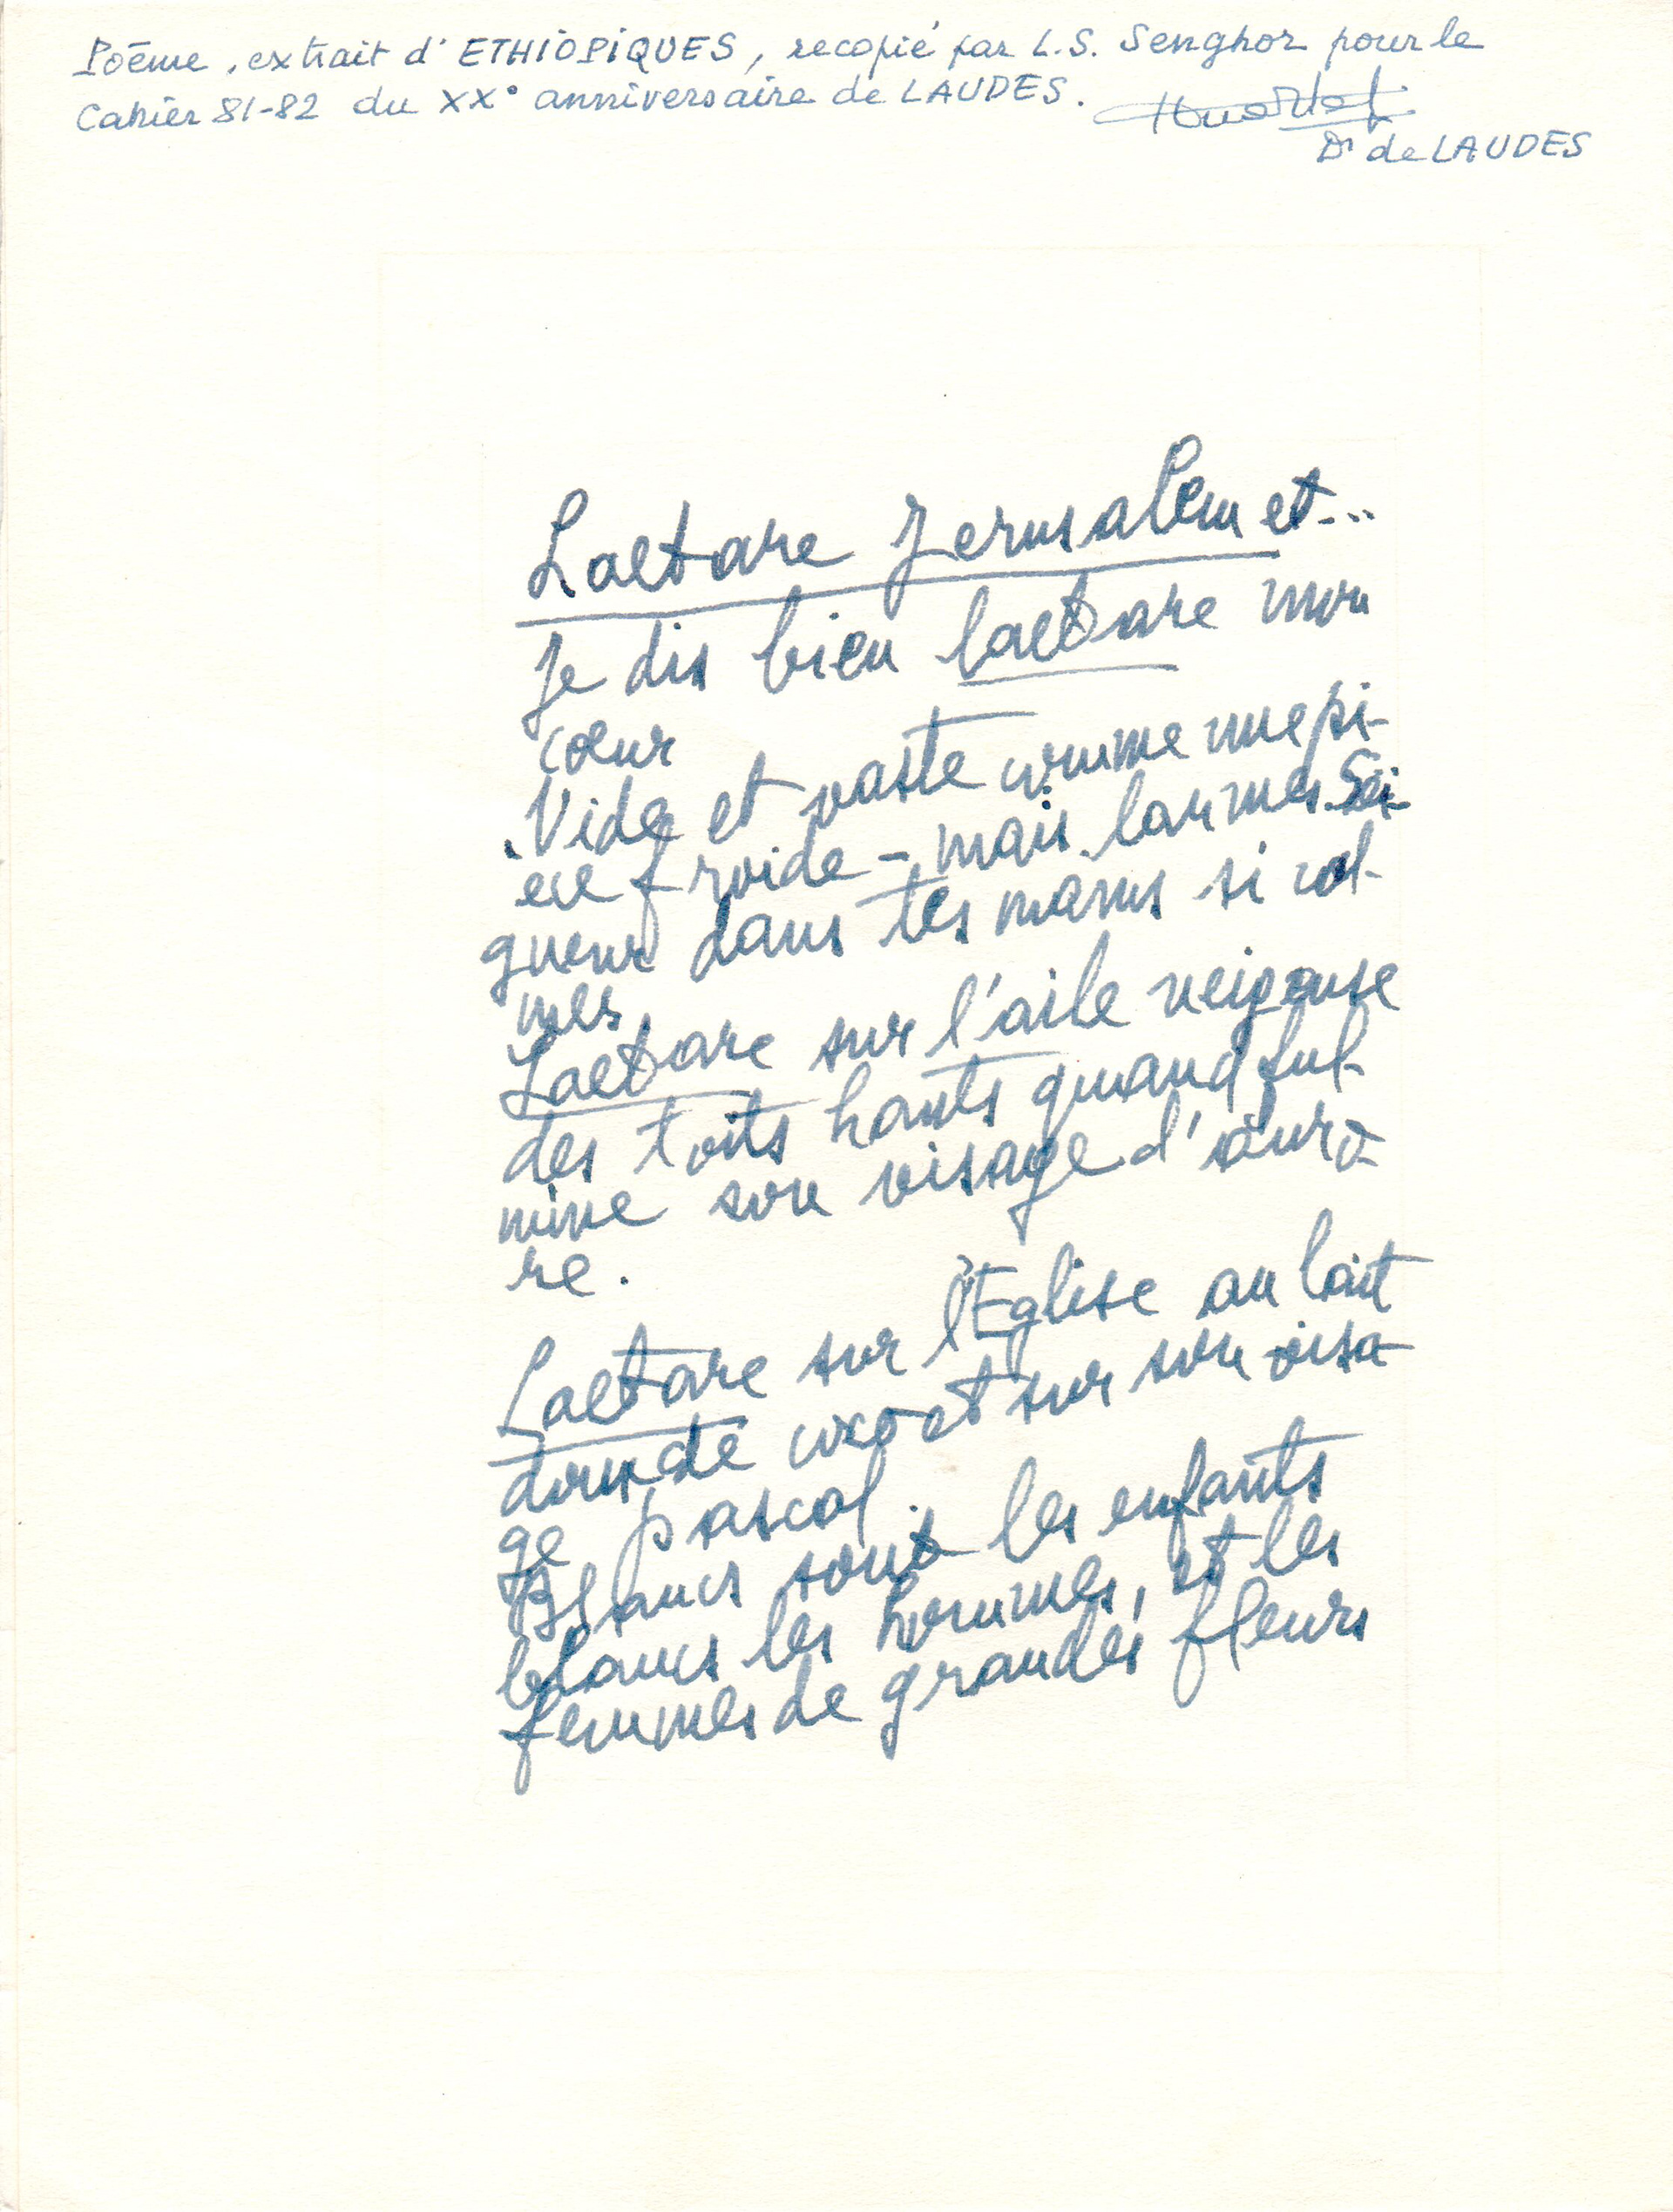 Poème, extrait d'ETHIOPIQUES, recopié par L.S. Senghor pour le
Cahier 81-82 du XX° anniversaire de LAUDES.
Dr de LAUDES
Laetare Jerusalem et...
Je dis bien laetare mon
cœur
Vide et vaste comme une pi-
ece froide - mais larmes Sei-
gneur dans tes mains si cal-
mes
Laetare sur l'aile neigeuse
des toits hauts quand ful-
mine son visage d'auro-
re.
Laetare sur l'Eglise au lait
doux de coco et sur son visa-
ge pascal.
Blancs sont les enfants
blancs les hommes, et les
femmes de grandes fleurs